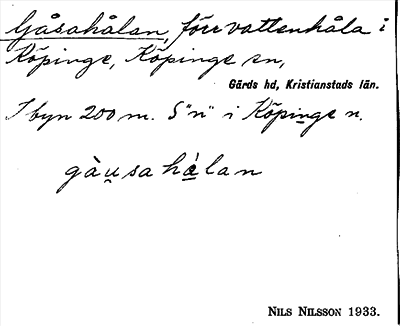 Gåsahålan, förr vattenhåla i
Köpinge, Köpinge sn,
Gärds hd, Kristianstads län.
I byn 200 m. S "n" i Köpinge n.
gàu̯sa hálan
NILS NILSSON 1933.